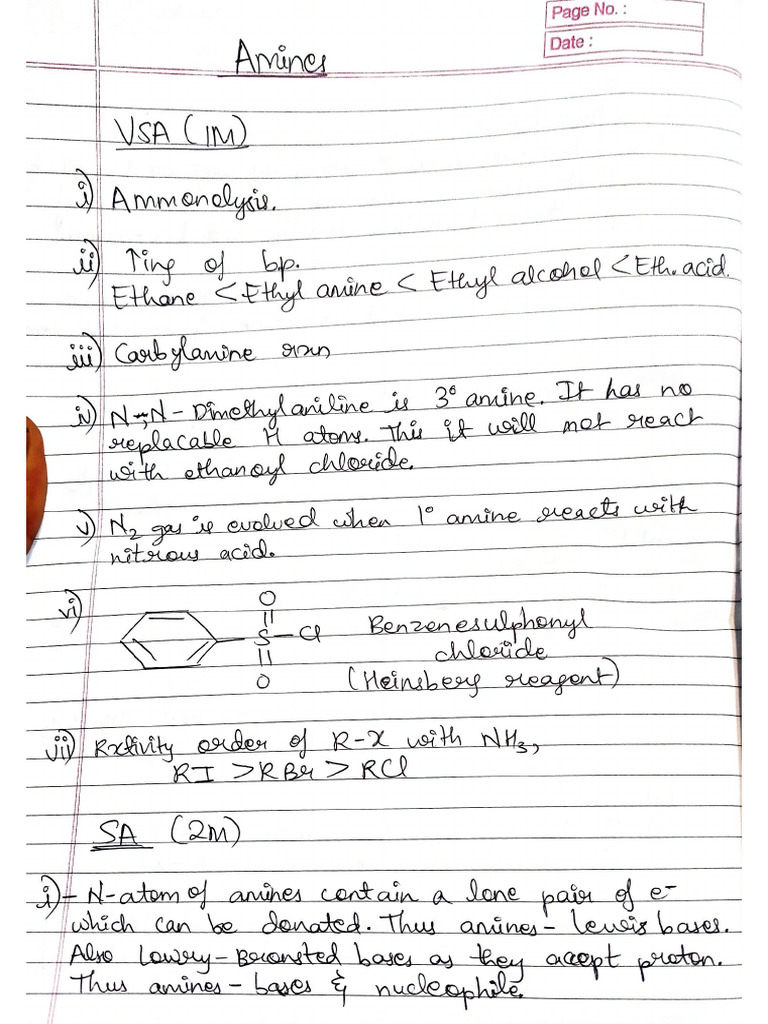 Page No. :
Date :
Amines
VSA (1M)
i) Ammonolysis.
ii) ↑ing of bp.
Ethane < Ethyl amine < Ethyl alcohol < Eth. acid.
iii) Carbylamine rxn
iv) N,N-Dimethylaniline is 3° amine. It has no
replacable H atoms. This it will not react
with ethanoyl chloride.
v) N2 gas is evolved when 1° amine reacts with
nitrous acid.
vi)
O
||
S-Cl
||
O
Benzenesulphonyl
chloride
(Heinsberg reagent)
vii) Rxtivity order of R-X with NH3,
RI > RBr > RCl
SA (2M)
i) - N-atom of amines contain a lone pair of e-
which can be donated. Thus amines - lewis bases.
Also Lowry-Bronsted bases as they accept proton.
Thus amines - bases & nucleophile.